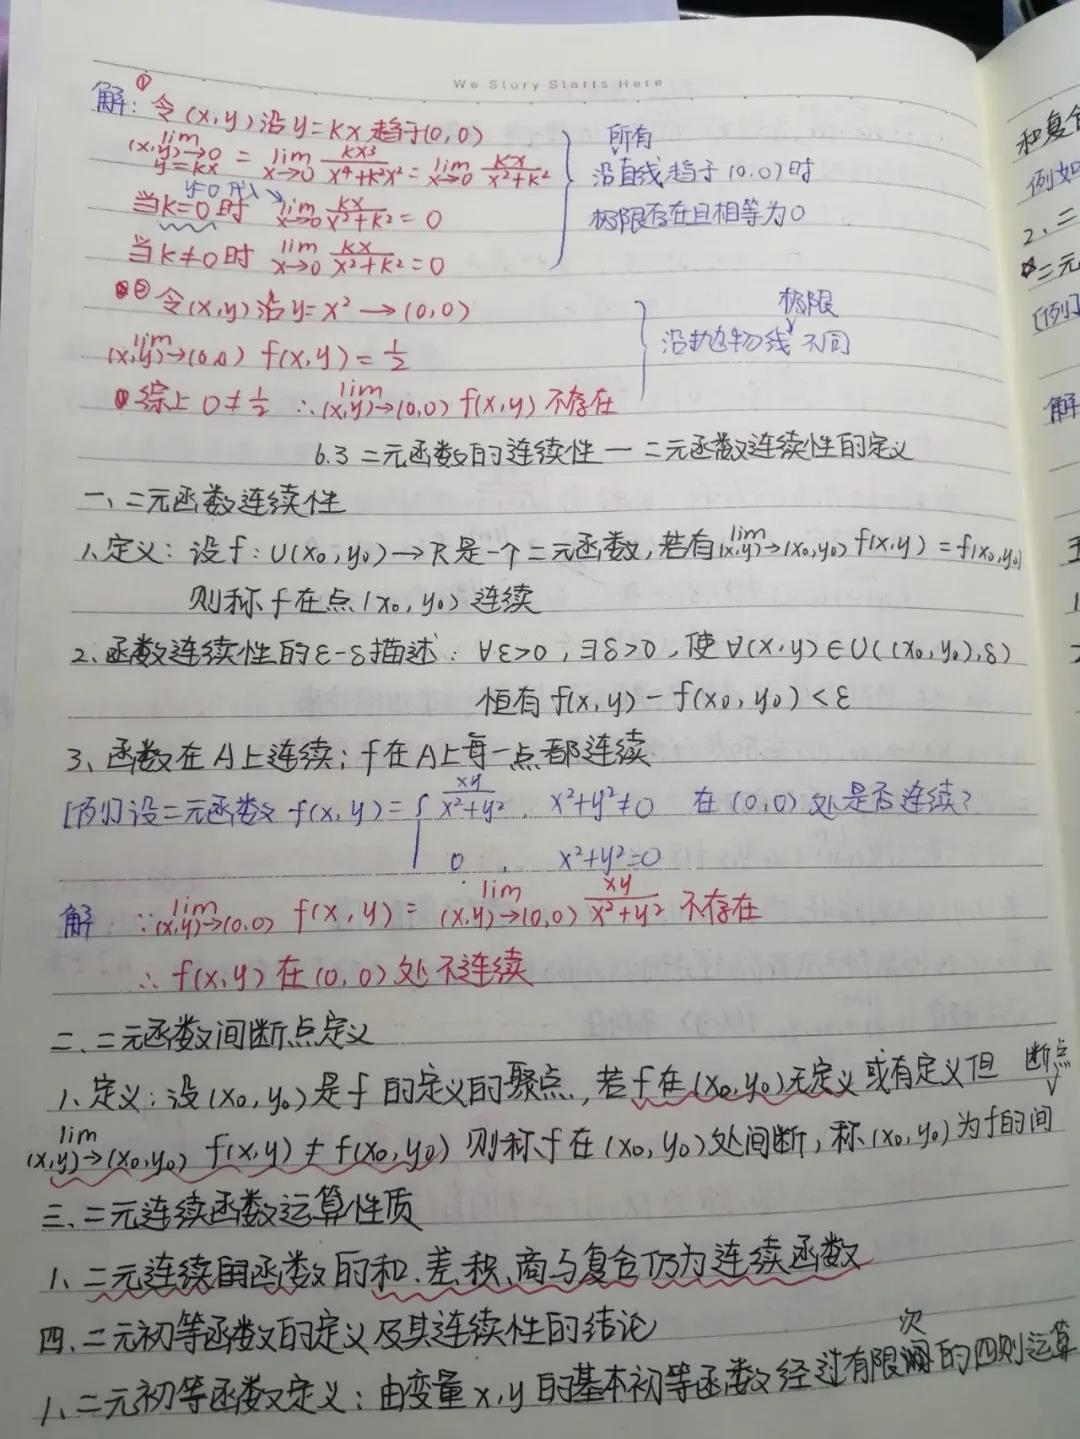 We Story Starts Here
解: ① 令(x,y)沿y=kx趋于(0,0)
lim (x,y)→0 y=kx = lim x→0 kx³/(x⁴+k²x²) = lim x→0 kx/(x²+k²)
y=0代入
当k=0时 lim x→0 kx/(x²+k²) = 0
当k≠0时 lim x→0 kx/(x²+k²) = 0
所有
沿直线趋于(0,0)时
极限存在且相等为0
② 令(x,y)沿y=x²→(0,0)
lim (x,y)→(0,0) f(x,y)=1/2
极限
沿抛物线不同
综上 0≠1/2 ∴ lim (x,y)→(0,0) f(x,y) 不存在
6.3 二元函数的连续性一 二元函数连续性的定义
一、二元函数连续性
1、定义: 设f: U(x₀,y₀)→R是一个二元函数, 若有 lim (x,y)→(x₀,y₀) f(x,y)=f(x₀,y₀)
则称f在点(x₀,y₀)连续
2、函数连续性的ε-δ描述: ∀ε>0, ∃δ>0, 使∀(x,y)∈U((x₀,y₀),δ)
恒有 f(x,y)-f(x₀,y₀)<ε
3、函数在A上连续; f在A上每一点都连续
[例1]设二元函数 f(x,y)={ xy/(x²+y²), x²+y²≠0 在(0,0)处是否连续?
0, x²+y²=0
解: ∵ lim (x,y)→(0,0) f(x,y) = lim (x,y)→(0,0) xy/(x²+y²) 不存在
∴ f(x,y)在(0,0)处不连续
二、二元函数间断点定义
1、定义: 设(x₀,y₀)是f的定义的聚点, 若f在(x₀,y₀)无定义或有定义但
lim (x,y)→(x₀,y₀) f(x,y)≠f(x₀,y₀) 则称f在(x₀,y₀)处间断, 称(x₀,y₀)为f的间
断点
三、二元连续函数运算性质
1、二元连续函数的和、差、积、商与复合仍为连续函数
四、二元初等函数的定义及其连续性的结论
1、二元初等函数定义: 由变量x,y的基本初等函数经过有限次的四则运算
和复合
例如
2、二
二元
[例]
解